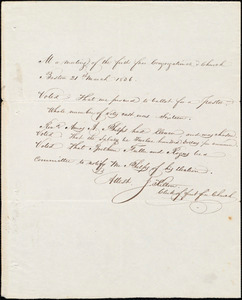 At a meeting of the first free Congregational Church
Boston 21st March 1836.
Voted That we proceed to ballot for a pastor
Whole number of votes cast was
Revd. Amos A. Phelps had and was chosen
Voted That the salary be Twelve hundred dollars per annum
Voted That and be a
Committee to notify Mr Phelps of his election.
Attest
Clerk of first free Church